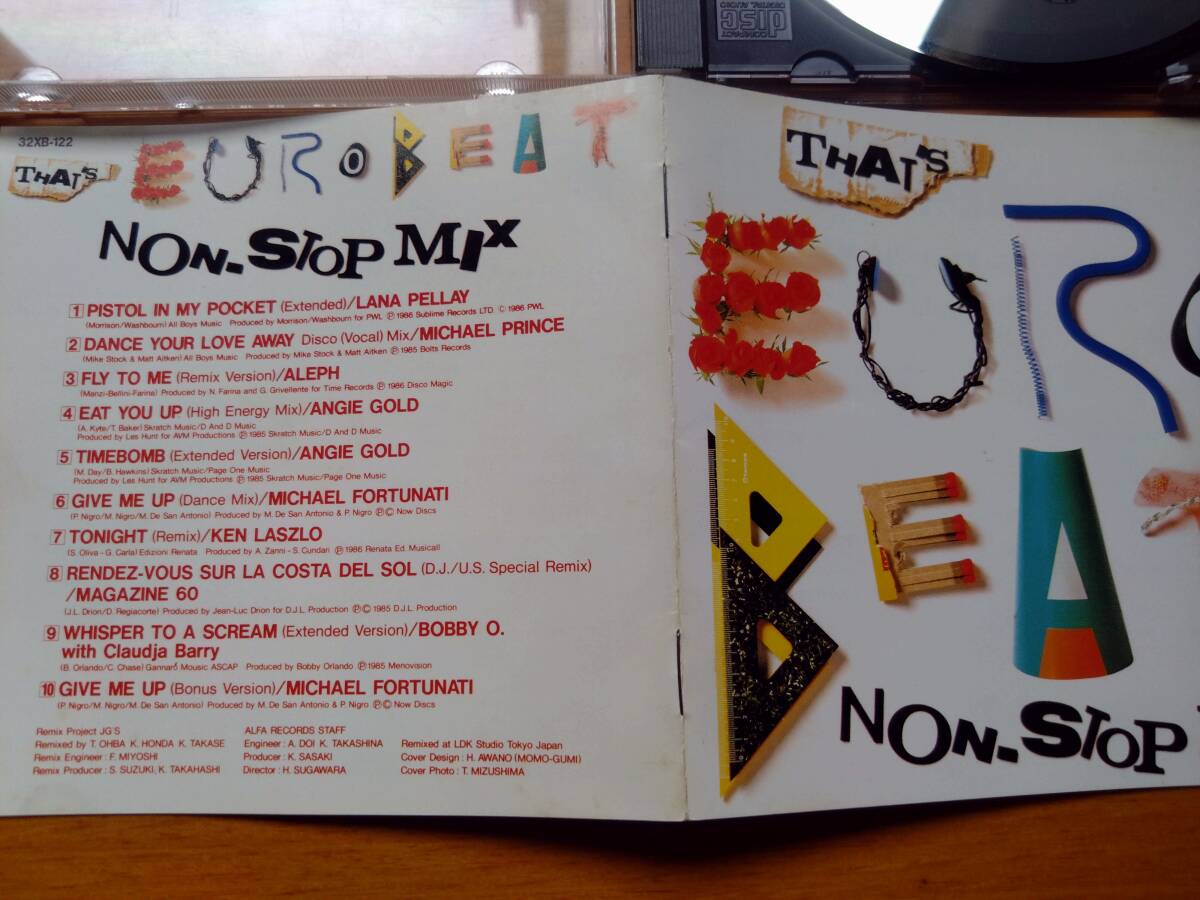 COMPACT
disc
DIGITAL AUDIO
32XB-122
THAT'S
EUROBEAT
NON-STOP MIX
1 PISTOL IN MY POCKET (Extended)/LANA PELLAY
(Morrison/Washbourn) All Boys Music Produced by Morrison/Washbourn for PWL Ⓟ 1986 Sublime Records LTD. © 1986 PWL
2 DANCE YOUR LOVE AWAY Disco (Vocal) Mix/MICHAEL PRINCE
(Mike Stock & Matt Aitken) All Boys Music Produced by Mike Stock & Matt Aitken Ⓟ 1985 Bolts Records
3 FLY TO ME (Remix Version)/ALEPH
(Manzi-Bellini-Farina) Produced by N. Farina and G. Grivellente for Time Records Ⓟ 1986 Disco Magic
4 EAT YOU UP (High Energy Mix)/ANGIE GOLD
(A. Kyte/T. Baker) Skratch Music/D And D Music
Produced by Les Hunt for AVM Productions Ⓟ 1985 Skratch Music/D And D Music
5 TIMEBOMB (Extended Version)/ANGIE GOLD
(M. Day/B. Hawkins) Skratch Music/Page One Music
Produced by Les Hunt for AVM Productions Ⓟ 1985 Skratch Music/Page One Music
6 GIVE ME UP (Dance Mix)/MICHAEL FORTUNATI
(P. Nigro/M. Nigro/M. De San Antonio) Produced by M. De San Antonio & P. Nigro Ⓟ© Now Discs
7 TONIGHT (Remix)/KEN LASZLO
(S. Oliva - G. Carla) Edizioni Renata Produced by A. Zanni - S. Cundari Ⓟ 1986 Renata Ed. Musicall
8 RENDEZ-VOUS SUR LA COSTA DEL SOL (D.J./U.S. Special Remix)
/MAGAZINE 60
(J.L. Drion/D. Regiacorte) Produced by Jean-Luc Drion for D.J.L. Production Ⓟ© 1985 D.J.L. Production
9 WHISPER TO A SCREAM (Extended Version)/BOBBY O.
with Claudja Barry
(B. Orlando/C. Chase) Gannaró Mousic ASCAP Produced by Bobby Orlando Ⓟ 1985 Menovision
10 GIVE ME UP (Bonus Version)/MICHAEL FORTUNATI
(P. Nigro/M. Nigro/M. De San Antonio) Produced by M. De San Antonio & P. Nigro Ⓟ© Now Discs
Remix Project JG'S
Remixed by T. OHBA K. HONDA K. TAKASE
Remix Engineer : F. MIYOSHI
Remix Producer : S. SUZUKI, K. TAKAHASHI
ALFA RECORDS STAFF
Engineer : A. DOI K. TAKASHINA
Producer : K. SASAKI
Director : H. SUGAWARA
Remixed at LDK Studio Tokyo Japan
Cover Design : H. AWANO (MOMO-GUMI)
Cover Photo : T. MIZUSHIMA
THAT'S
EURO
BEAT
NON-STOP